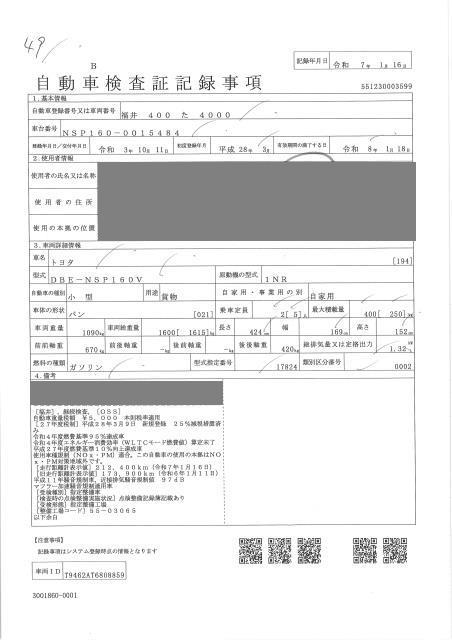 49/
B
記録年月日 令和 7年 1月 16日
自動車検査証記録事項
551230003599
1.基本情報
自動車登録番号又は車両番号 福井 400 た 4000
車台番号 NSP160-0015484
登録年月日/交付年月日 令和 3年 10月 11日 初度登録年月 平成 28年 3月 有効期間の満了する日 令和 8年 1月 18日
2.使用者情報
使用者の氏名又は名称
使用者の住所
使用の本拠の位置
3.車両詳細情報
車名 トヨタ [194]
型式 DBE-NSP160V 原動機の型式 1NR
自動車の種別 小型 用途 貨物 自家用・事業用の別 自家用
車体の形状 バン [021] 乗車定員 2[ 5]人 最大積載量 400[ 250]kg
車両重量 1090kg 車両総重量 1600[ 1615]kg 長さ 424cm 幅 169cm 高さ 152cm
前前軸重 670kg 前後軸重 -kg 後前軸重 -kg 後後軸重 420kg 総排気量又は定格出力 1.32
燃料の種類 ガソリン 型式指定番号 17824 類別区分番号 0002
4.備考
[福井],継続検査,[OSS]
自動車重量税額 ¥5,000 本則税率適用
[27年度税制]平成28年3月9日 新規登録 25%減税措置済
み
令和4年度燃費基準95%達成車
令和4年度エネルギー消費効率(WLTCモード燃費値)算定未了
平成27年度燃費基準10%向上達成車
使用車種規制(NOx・PM)適合。この自動車の使用の本拠はNO
x・PM対策地域外です。
[走行距離計表示値]212,400km(令和7年1月16日)
[旧走行距離計表示値]173,900km(令和6年1月11日)
平成11年騒音規制車、近接排気騒音規制値 97dB
マフラー加速騒音規制適用車
[受検種別]指定整備車
[検査時の点検整備実施状況]点検整備記録簿記載あり
[受検形態]指定整備工場
[整備工場コード]55-03065
以下余白
[注意事項]
記録事項はシステム登録時点の情報となります
車両ID T9462AT6808859
3001860-0001